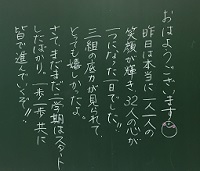 おはようございます
昨日は本当に一人一人の
笑顔が輝き、32人の心が
一つになった一日でした!!
三組の底力が見られて、
とっても嬉しかったよ。
さて、まだまだ二学期はスタート
したばかり。一歩一歩、共に
皆で進んでいくぞ!!